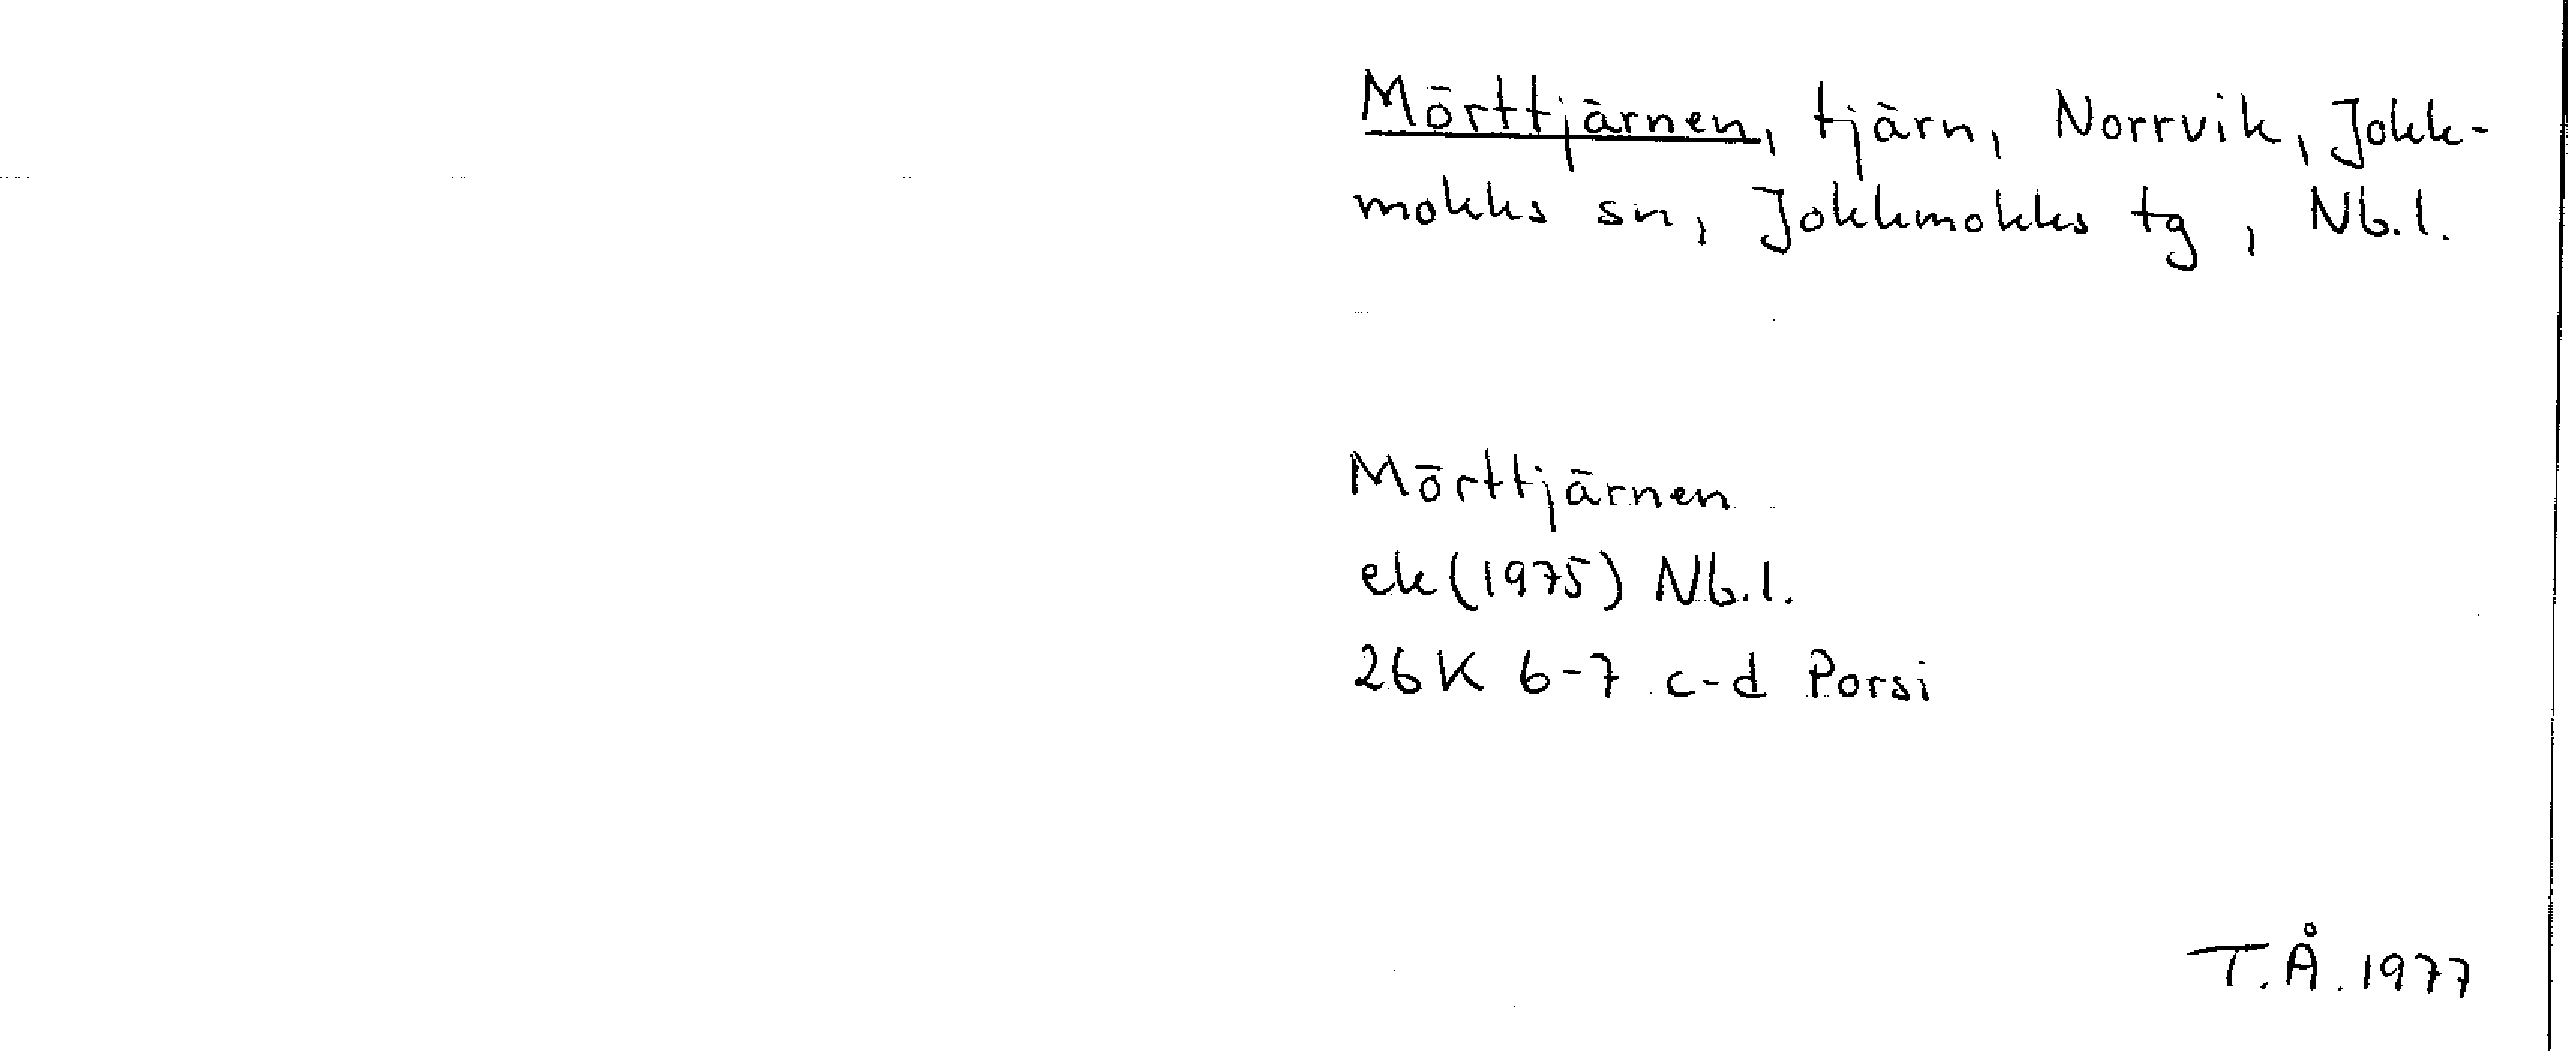 Mörttjärnen, tjärn, Norrvik, Jokk-
mokks sn, Jokkmokks tg, Nb.l.
Mörttjärnen
ek (1975) Nb.l.
26K 6-7 c-d Porsi
T.Å. 1977